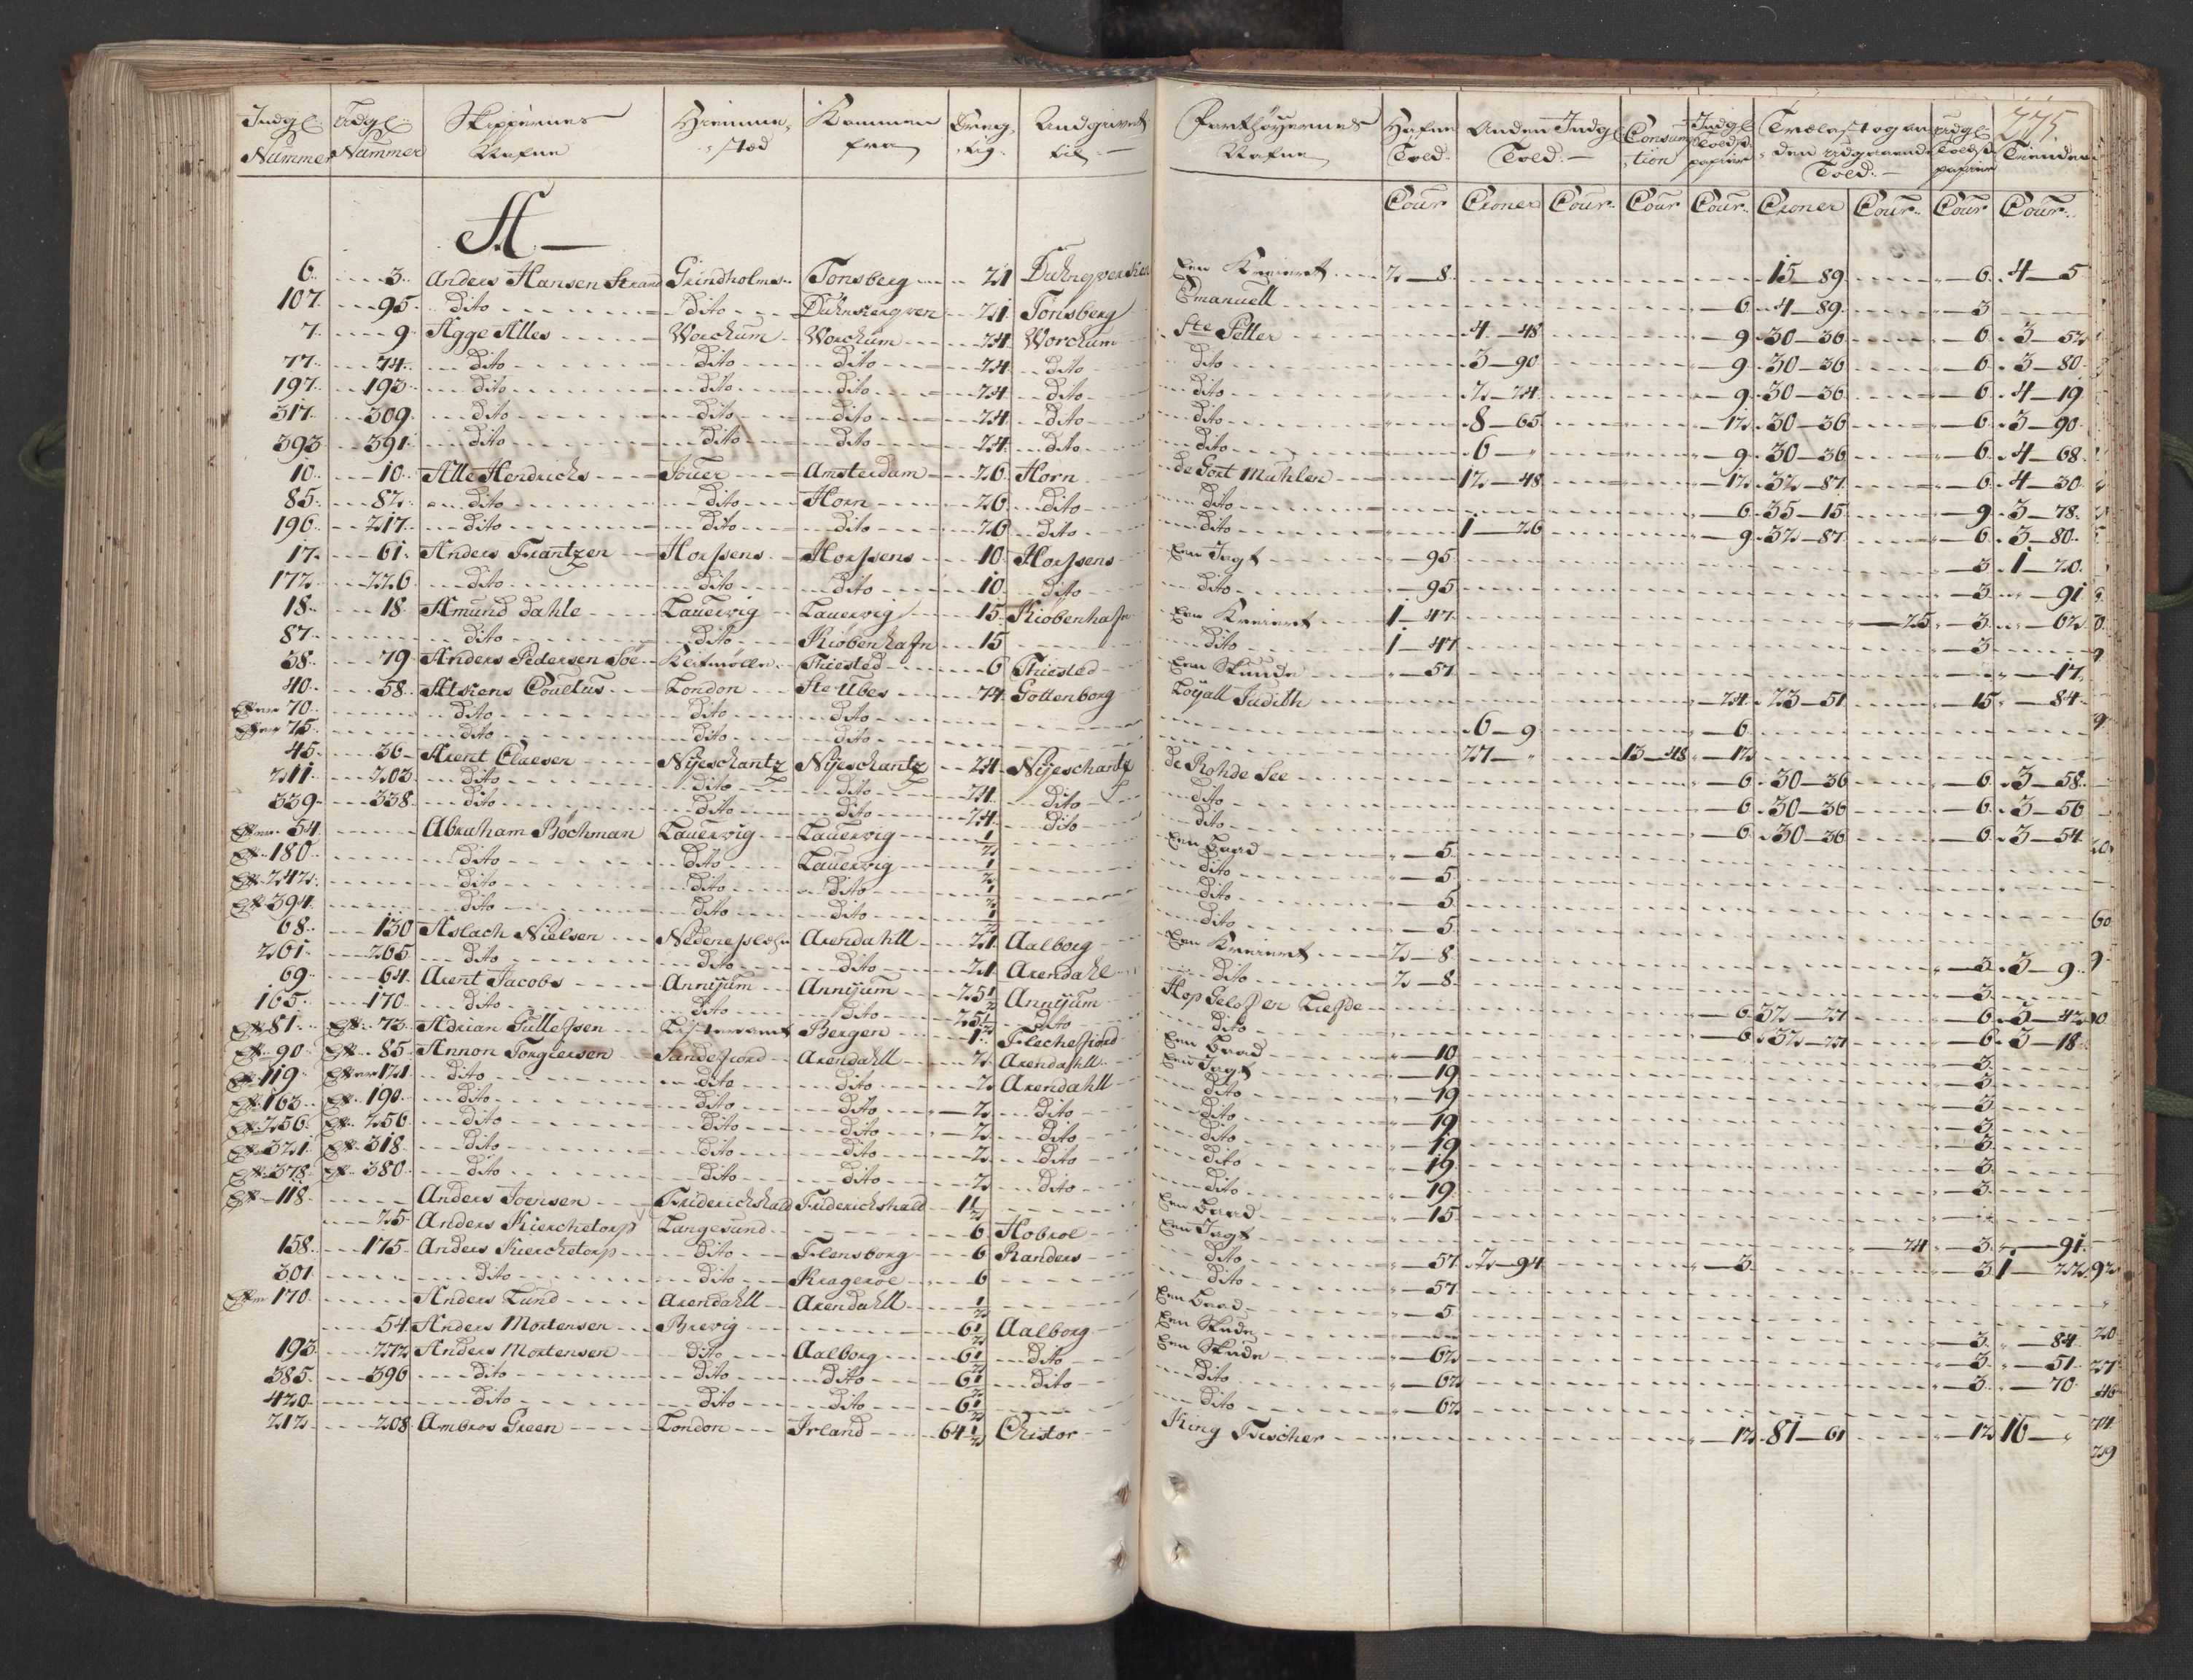 Indgl. Nummer | Udgl. Nummer | Skippernes Nafne | Hiemme-stæd | Kommen fra | Dreg-tig. | Andgivet til
Fartøyernes Nafne | Hafne Told | Anden Indgl. Told | Consumption | Indgl. Told papiir | Trælast og anden udgaaende Told | Udgl. papiir | Tiender
275.
Cour | Croner | Cour. | Cour | Cour. | Croner | Cour. | Cour | Cour.
A.
6 | 3 | Anders Hansen Strand | Grindholms | Tonsberg | 21 | | Een Kreiert | 2-8 | 15-89 | 6 | 4-5
107 | 95 | dito | dito | | 21 | Tonsberg | Emanuell | 6 | 4-89 | 3
7 | 9 | Agge Alles | Worckum | Worckum | 24 | Worckum | Ste Petter | 4-48 | 9 | 30-36 | 6 | 3-52
77 | 74 | dito | dito | dito | 24 | dito | dito | 3-90 | 9 | 30-36 | 6 | 3-80
197 | 193 | dito | dito | dito | 24 | dito | dito | 2-24 | 9 | 30-36 | 6 | 4-19
317 | 309 | dito | dito | dito | 24 | dito | dito | 8-65 | 12 | 30-36 | 6 | 3-90
393 | 391 | dito | dito | dito | 24 | dito | dito | 6-" | 9 | 30-36 | 6 | 4-68
10 | 10 | Alle Hendrichs | Jouer | Amsterdam | 26 | Horn | de Gort Muhlen | 12-48 | 12 | 32-87 | 6 | 4-30
85 | 82 | dito | dito | Horn | 26 | dito | dito | 6 | 35-15 | 9 | 3-78
196 | 217 | dito | dito | dito | 26 | dito | dito | 1-26 | 9 | 32-87 | 6 | 3-80
17 | 61 | Anders Frantzen | Horssens | Horssens | 10 | Horssens | Een Jagt | 95 | 3 | 1-20
172 | 226 | dito | dito | dito | 10 | dito | dito | 95 | 3 | 91
18 | 18 | Amund Dahle | Lauervig | Lauervig | 15 | Kiobenhafn | Een Kreiert | 1-47 | 25 | 3 | 62
87 | dito | dito | Kiobenhafn | 15 | dito | 1-47 | 3
38 | 79 | Anders Pedersen Söe | Klitmøller | Thiested | 6 | Thiested | Een Skude | 57 | 17
40 | 58 | Atkens Coultus | London | Ste Ubes | 74 | Gottenborg | Loyall Judith | 24 | 73-51 | 15 | 84
70 | dito | dito | dito | 6-9 | 6
75 | dito | dito | dito | 27-" | 13-48 | 12
45 | 36 | Arent Claesen | Nijeschantz | Nijeschantz | 24 | Nijeschantz | de Rohde See | 6 | 30-36 | 6 | 3-58
211 | 203 | dito | dito | dito | 24 | dito | dito | 6 | 30-36 | 6 | 3-56
339 | 338 | dito | dito | dito | 24 | dito | dito | 6 | 30-36 | 6 | 3-54
54 | Abraham Bochman | Lauervig | Lauervig | 1/2 | Een Baad | 5
180 | dito | dito | Lauervig | 1/2 | dito | 5
242 | dito | dito | dito | 1/2 | dito | 5
394 | dito | dito | dito | 1/2 | dito | 5
68 | 130 | Aslach Nielsen | | Arendahll | 21 | Aalborg | Een Kreiert | 2-8 | 3 | 3-9
261 | 265 | dito | dito | dito | 21 | Arendahl | dito | 2-8 | 3
69 | 64 | Arent Jacobs | Annijum | Annijum | 25 1/2 | Annijum | Hop Gelost en Liefde | 6 | 32-27 | 6 | 3-42
165 | 170 | dito | dito | dito | 25 1/2 | dito | dito | 6 | 32-27 | 6 | 3-18
81 | 73 | Adrian Gullefsen | | Bergen | 1 | Flechefiord | Een Baad | 10 | 3
90 | 85 | Annon Torgiersen | Sandefiord | Arendahll | 2 | Arendahll | Een Jagt | 19 | 3
119 | 121 | dito | dito | dito | 2 | Arendahll | dito | 19 | 3
163 | 190 | dito | dito | dito | 2 | dito | dito | 19 | 3
256 | 256 | dito | dito | dito | 2 | dito | dito | 19 | 3
321 | 318 | dito | dito | dito | 2 | dito | dito | 19 | 3
378 | 380 | dito | dito | dito | 2 | dito | dito | 19 | 3
118 | Anders Joensen | Friderichshald | Friderichshald | 1 1/2 | Een Baad | 15
25 | Anders Kierchetorp | Langesund | 6 | Hobroe | Een Jagt | 24 | 3 | 91
158 | 175 | Anders Kierchetorp | dito | Flensborg | 6 | Randers | dito | 57 | 2-94 | 3 | 3 | 1-22
301 | dito | dito | Krageroe | 6 | dito | 57
170 | Anders Lund | Arendahll | Arendahll | 1/2 | Een Baad | 5
54 | Anders Mortensen | Brevig | 6 1/2 | Aalborg | Een Skude | 3 | 84
193 | 272 | Anders Mortensen | dito | Aalborg | 6 1/2 | dito | Een Skude | 62 | 3 | 51
385 | 396 | dito | dito | dito | 6 1/2 | dito | dito | 62 | 3 | 70
420 | dito | dito | dito | 6 1/2 | dito | 62
212 | 208 | Ambros Green | London | Irland | 64 1/2 | Christor | King Fischer | 12 | 81-61 | 12 | 16-"